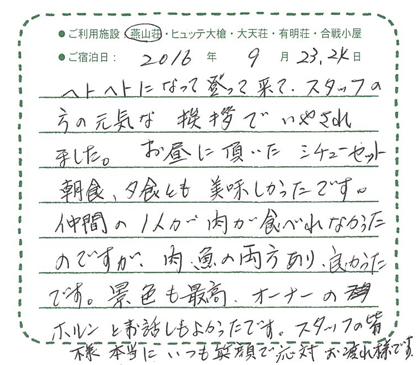 ●ご利用施設 燕山荘・ヒュッテ大槍・大天荘・有明荘・合戦小屋
●ご宿泊日： 2016 年 9 月 23,24 日
ヘトヘトになって登って来て、スタッフの
方の元気な 挨拶で いやされ
ました。 お昼に頂いた シチューセット
朝食、夕食とも 美味しかったです。
仲間の1人が肉が食べれなかった
のですが、肉、魚の両方あり、良かった
です。景色も最高、オーナーの
ホルンとお話しもよかったです。スタッフの皆
様 本当に いつも笑顔で応対 お疲れ様です